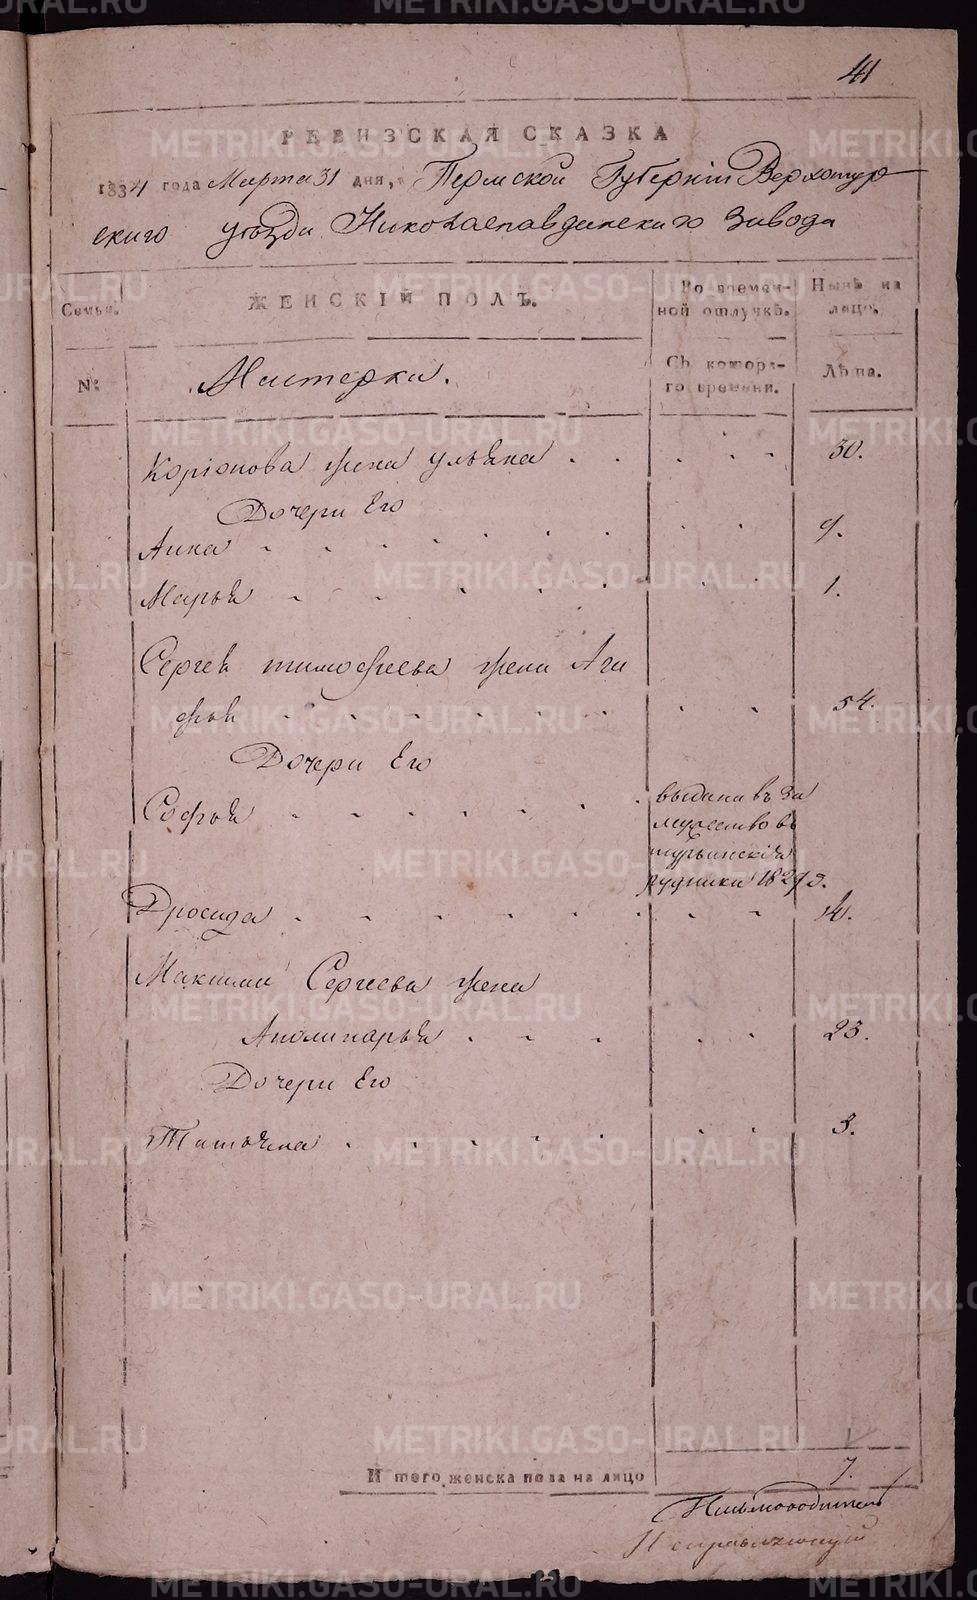 41
РЕВИЗСКАЯ СКАЗКА
1834 года Марта 31 дня, Пермской Губерніи Верхотур
скаго уѣзда Николаепавдинскаго Завода
Семьи.
ЖЕНСКІЙ ПОЛЪ.
Во времен-
ной отлучкѣ.
Нынѣ на
лицо.
№
Мастерки.
Съ которо-
го времени.
Лѣта.
Коріонова жена Ульяна 30.
Дочери Его
Анна 9.
Марья 1.
Сергея тимофеева жена Ага
фья 54.
Дочери Его
Софья выдана въ за
мужество въ
турьинскія
рудники 1829 г.
Дросида 14.
Максима Сергеева жена
Аполинарья 23.
Дочери Его
Татьяна 3.
И того женска пола на лицо 7.
Письмоводитель
METRIKI.GASO-URAL.RU